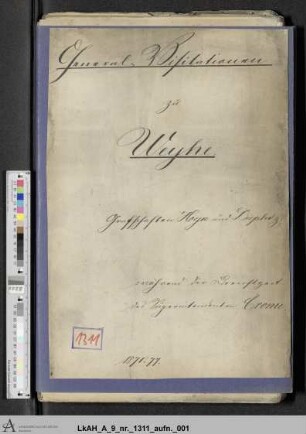 General-Visitationen
zu
Weyhe
Grafschaften Hoya und Diepholz
während der Dienstzeit
des Superintendenten Crome
1311
1871-77.
LkAH_A_9_nr._1311_aufn._001